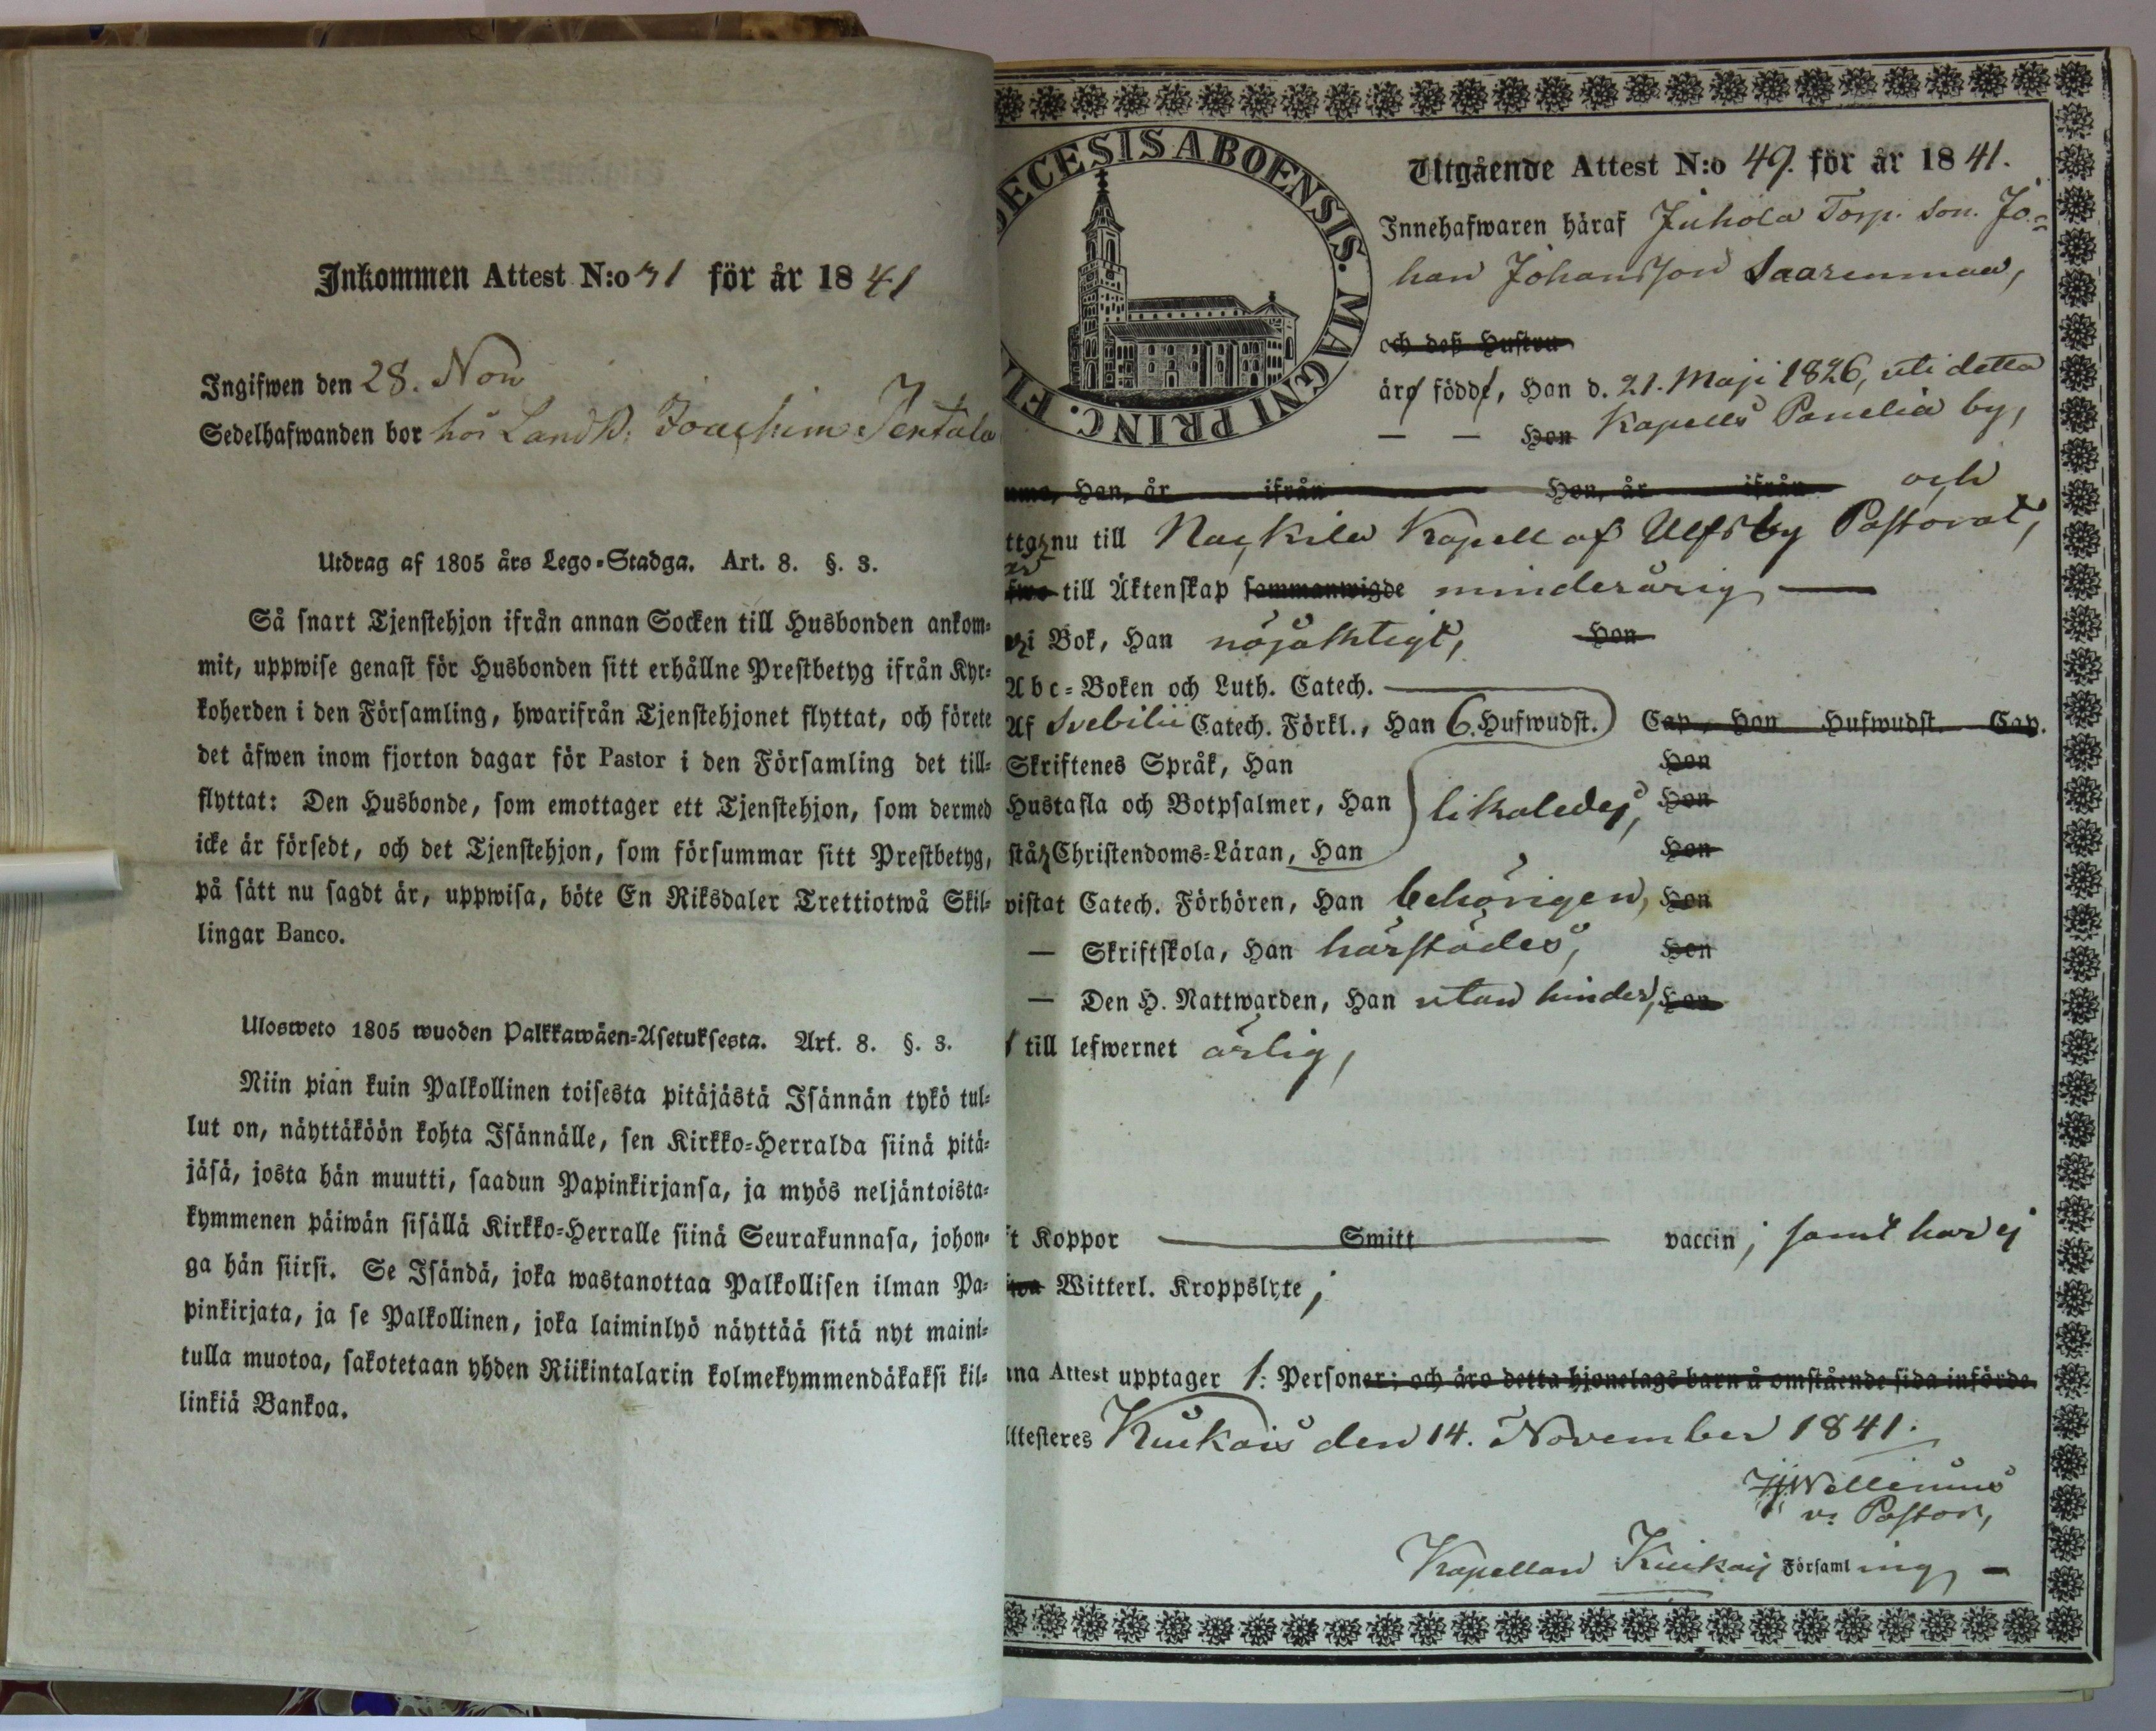 Inkommen Attest N:o 31 för år 1841
Ingifwen den 28. Nov
Sedelhafwanden bor hos Landb. Joachim Jentala
Utdrag af 1805 års Lego-Stadga. Art. 8. §. 3.
Så snart Tjenstehjon ifrån annan Socken till Husbonden ankom-
mit, uppwise genast för Husbonden sitt erhållne Prestbetyg ifrån Kyr-
koherden i den Församling, hwarifrån Tjenstehjonet flyttat, och förete
det äfwen inom fjorton dagar för Pastor i den Församling det till-
flyttat: Den Husbonde, som emottager ett Tjenstehjon, som dermed
icke är försedt, och det Tjenstehjon, som försummar sitt Prestbetyg,
på sätt nu sagdt är, uppwisa, böte En Riksdaler Trettiotwå Skil-
lingar Banco.
Ulosweto 1805 wuoden Palkkawäen-Asetuksesta. Art. 8. §. 3.
Niin pian kuin Palkollinen toisesta pitäjästä Isännän tykö tul-
lut on, näyttäköön kohta Isännälle, sen Kirkko-Herralda siinä pitä-
jäsä, josta hän muutti, saadun Papinkirjansa, ja myös neljäntoista-
kymmenen päiwän sisällä Kirkko-Herralle siinä Seurakunnasa, johon-
ga hän siirsi. Se Isändä, joka wastanottaa Palkollisen ilman Pa-
pinkirjata, ja se Palkollinen, joka laiminlyö näyttää sitä nyt maini-
tulla muotoa, sakotetaan yhden Riikintalarin kolmekymmendäkaksi kil-
linkiä Bankoa.
ECESIS ABOENSIS. MAGNI PRINC. FI
Utgående Attest N:o 49. för år 1841.
Innehafwaren häraf Juhola Torp. Son. Jo-
han Johansson Saarenmaa,
och deß Hustru
äro födde, Han d. 21. Maji 1826, uti detta
— — Hon Kapells Panelia by,
Han, år ifrån Hon, år ifrån och
nu till Nackila Kapell af Ulfsby Pastorat,
till Äktenskap sammanwigde minderårig —
i Bok, Han nöjaktigt, Hon
Abc-Boken och Luth. Catech.
Af Svebilii Catech. Förkl., Han 6. Hufwudst. Cap. Hon Hufwudst. Cap.
Skriftenes Språk, Han Hon
Hustafla och Botpsalmer, Han likaledes, Hon
Christendoms-Läran, Han Hon
vistat Catech. Förhören, Han behörigen, Hon
— Skriftskola, Han härstädes, Hon
— Den H. Nattwarden, Han utan hinder, Hon
till lefwernet ärlig,
t Koppor Smitt vaccin; samt har ej
Witterl. Kroppslyte;
na Attest upptager 1. Personer; och äro detta hjonelags barn å omstående sida införde.
ttesteres Kiukais den 14. November 1841.
Wallenius
v. Pastor,
Kapellan Kiukais Församling, —